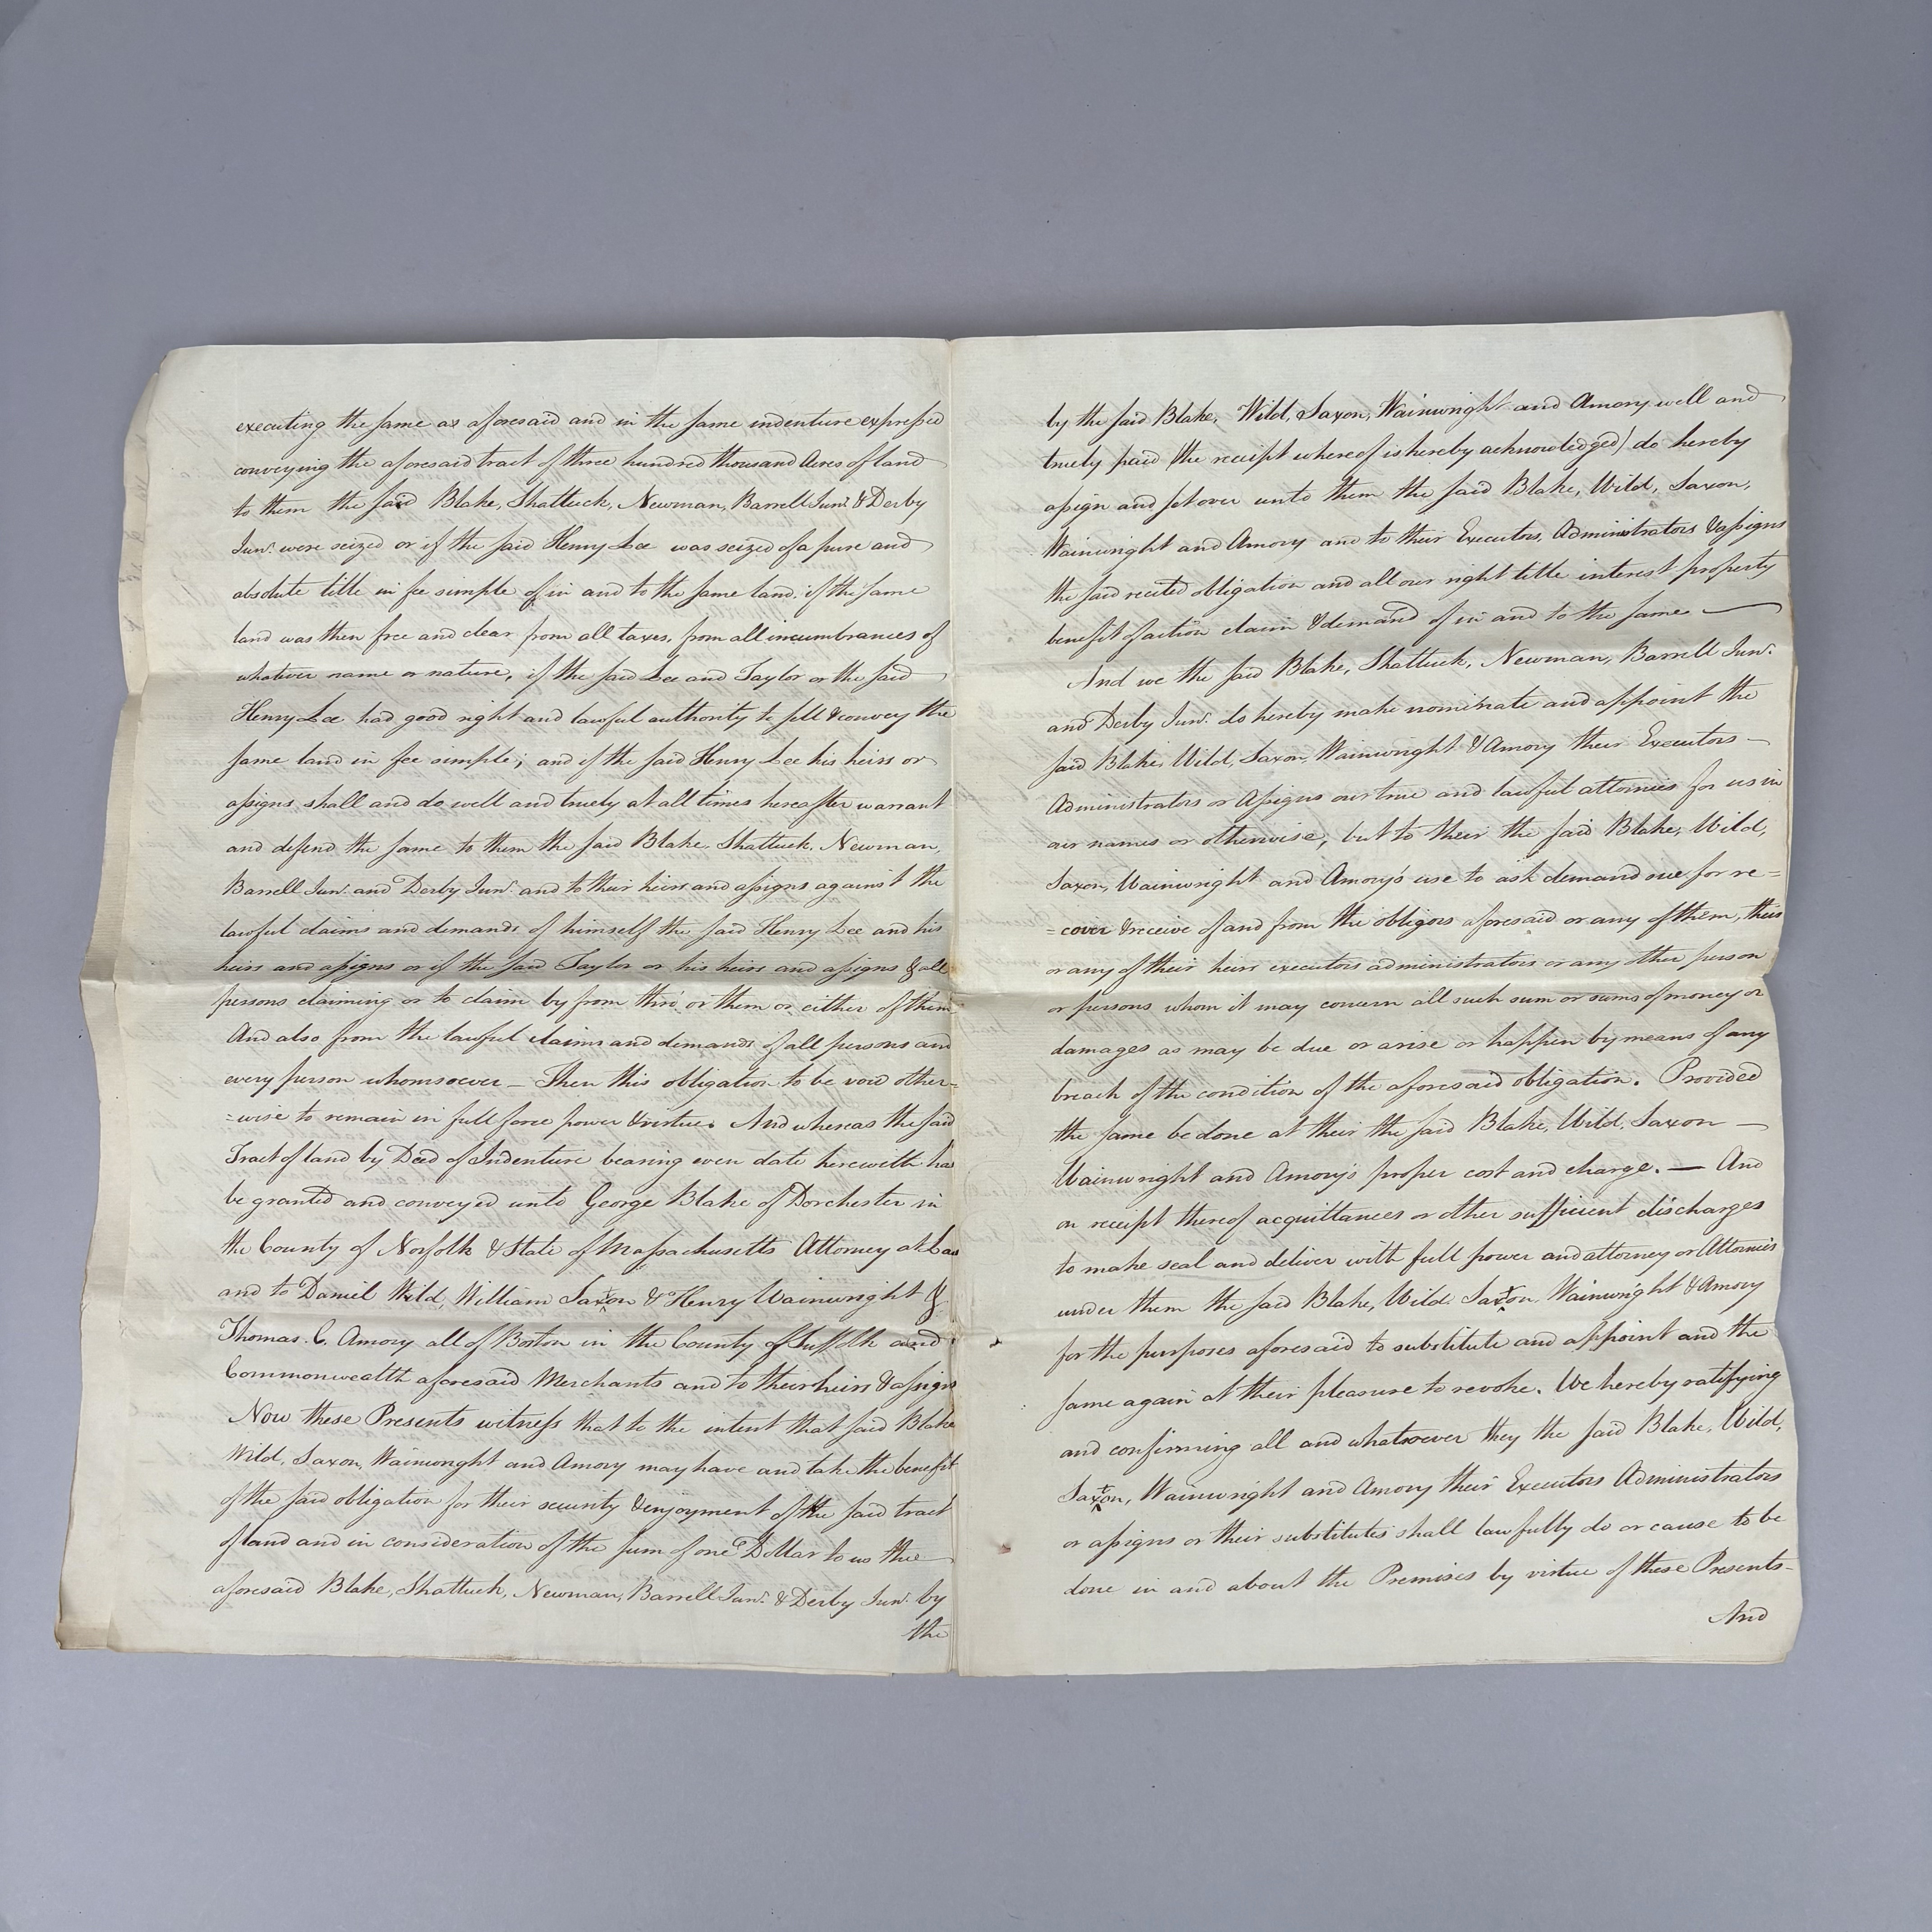 executing the same as aforesaid and in the same indenture expressed
conveying the aforesaid tract of three hundred thousand Acres of land
to them the said Blake, Shattuck, Newman, Barrell Junr. & Derby
Junr. were seized or if the said Henry Lee was seized of a pure and
absolute title in fee simple of in and to the same land. if the same
land was then free and clear from all taxes, from all incumbrances of
whatever name or nature, if the said Lee and Taylor or the said
Henry Lee had good right and lawful authority to sell & convey the
same land in fee simple; and if the said Henry Lee his heirs or
assigns shall and do well and truely at all times hereafter warrant
and defend the same to them the said Blake, Shattuck, Newman,
Barrell Junr. and Derby Junr. and to their heirs and assigns against the
lawful claims and demands of himself the said Henry Lee and his
heirs and assigns or if the said Taylor or his heirs and assigns & all
persons claiming or to claim by from thro' or them or either of them
And also from the lawful claims and demands of all persons and
every person whomsoever – Then this obligation to be void other=
=wise to remain in full force power & virtue. And whereas the said
Tract of land by Deed of Indenture bearing even date herewith has
be granted and conveyed unto George Blake of Dorchester in
the County of Norfolk & State of Massachusetts Attorney at Law
and to Daniel Wild, William Saxton & Henry Wainwright &
Thomas. C. Amory all of Boston in the County of Suffolk and
Commonwealth aforesaid Merchants and to their heirs & assigns
Now these Presents witness that to the intent that said Blake
Wild, Saxon, Wainwright and Amory may have and take the benefit
of the said obligation for their security & enjoyment of the said tract
of land and in consideration of the sum of one Dollar to us the
aforesaid Blake, Shattuck, Newman, Barrell Junr. & Derby Junr. by
the
by the said Blake, Wild, Saxon, Wainwright and Amory well and
truely paid (the receipt whereof is hereby acknowledged) do hereby
assign and set over unto them the said Blake, Wild, Saxon,
Wainwright and Amory and to their Executors, Administrators & assigns
the said recited obligation and all our right title interest property
benefit of action claim & demand of in and to the same —
And we the said Blake, Shattuck, Newman, Barrell Junr.
and Derby Junr. do hereby make nominate and appoint the
said Blake, Wild, Saxon, Wainwright & Amory their Executors –
Administrators or Assigns our true and lawful attornies for us in
our names or otherwise, but to their the said Blake, Wild,
Saxon, Wainwright and Amory's use to ask demand sue for re=
=cover & receive of and from the obligors aforesaid or any of them, their
or any of their heirs executors administrators or any other person
or persons whom it may concern all such sum or sums of money or
damages as may be due or arise or happen by means of any
breach of the condition of the aforesaid obligation. Provided
the same be done at their the said Blake, Wild, Saxon —
Wainwright and Amory's proper cost and charge. — And
on receipt thereof acquittances or other sufficient discharges
to make seal and deliver with full power and attorney or Attornies
under them the said Blake, Wild. Saxton, Wainwright & Amory
for the purposes aforesaid to substitute and appoint and the
same again at their pleasure to revoke. We hereby ratifying
and confirming all and whatsoever they the said Blake, Wild,
Saxton, Wainwright and Amory their Executors Administrators
or assigns or their substitutes shall lawfully do or cause to be
done in and about the Premises by virtue of these Presents –
And